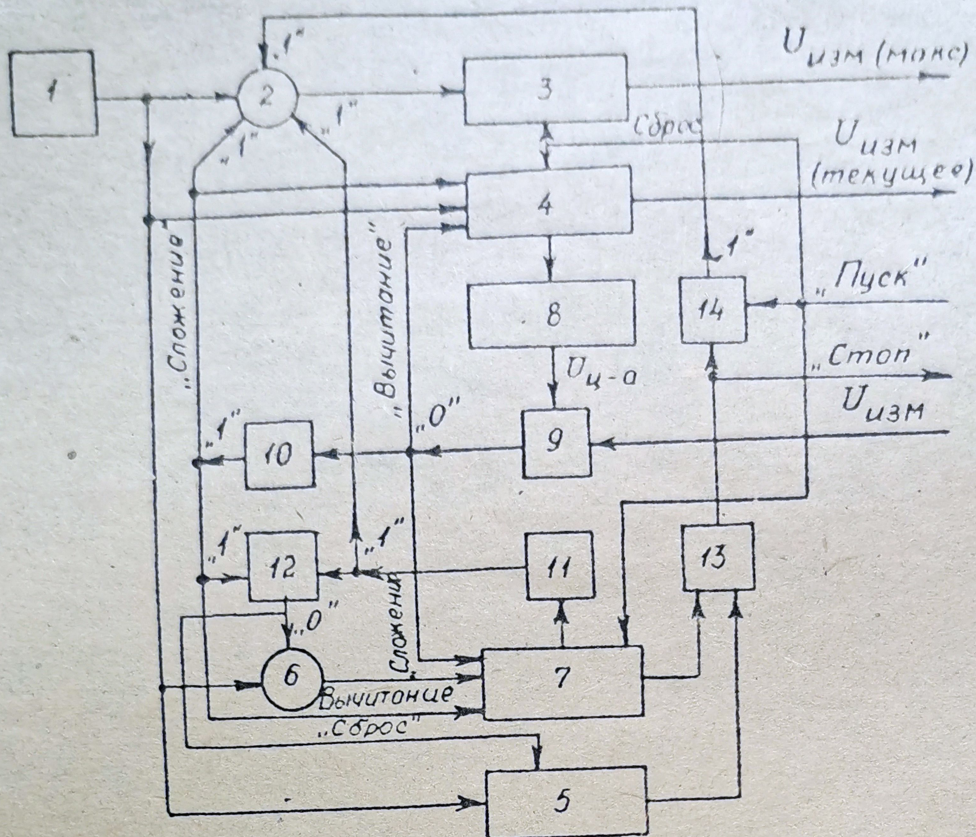 1
„1"
2
3
U изм (макс)
„1"
„1"
Сброс
4
U изм (текущее)
„Сложение"
„Вычитание"
„1"
8
14
„Пуск"
U ц-а
„Стоп"
U изм
„1"
10
„0"
9
„1"
12
„1"
11
13
„0"
Сложени
6
7
Вычитание
„Сброс"
5